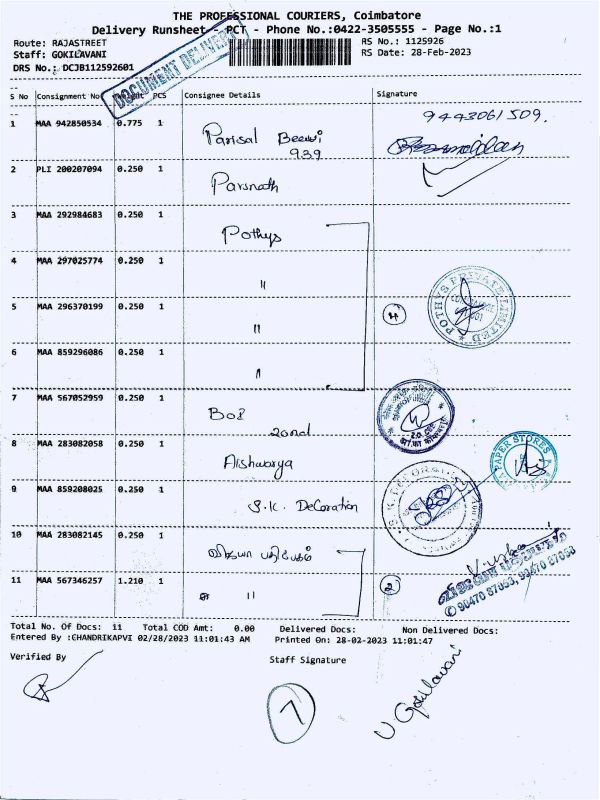 THE PROFESSIONAL COURIERS, Coimbatore
Delivery Runsheet - PCT - Phone No.:0422-3505555 - Page No.:1
Route: RAJASTREET
Staff: GOKILAVANI
DRS No.: DCJB112592601
RS No.: 1125926
RS Date: 28-Feb-2023
DOCUMENT DELIVERY
S No Consignment No Weight PCS Consignee Details Signature
1 MAA 942850534 0.775 1 Parisal Beevi 9443061509.
939
2 PLI 200207094 0.250 1 Parsnath
3 MAA 292984683 0.250 1 Pothys
4 MAA 297025774 0.250 1 "
5 MAA 296370199 0.250 1 " 4
POTHYS PRIVATE LIMITED
6 MAA 859296086 0.250 1 "
7 MAA 567052959 0.250 1 BOB
Zonal
8 MAA 283082058 0.250 1 Aishwarya
PAPER STORES
9 MAA 859208025 0.250 1 S.K. Decoration
10 MAA 283082145 0.250 1 விஜயா பதிப்பகம்
விஜயா பதிப்பகம்
11 MAA 567346257 1.210 1 " 2
90470 87053, 90470 87058
Total No. Of Docs: 11 Total COD Amt: 0.00 Delivered Docs: Non Delivered Docs:
Entered By :CHANDRIKAPVI 02/28/2023 11:01:43 AM Printed On: 28-02-2023 11:01:47
Verified By Staff Signature
7
V Gokilavani